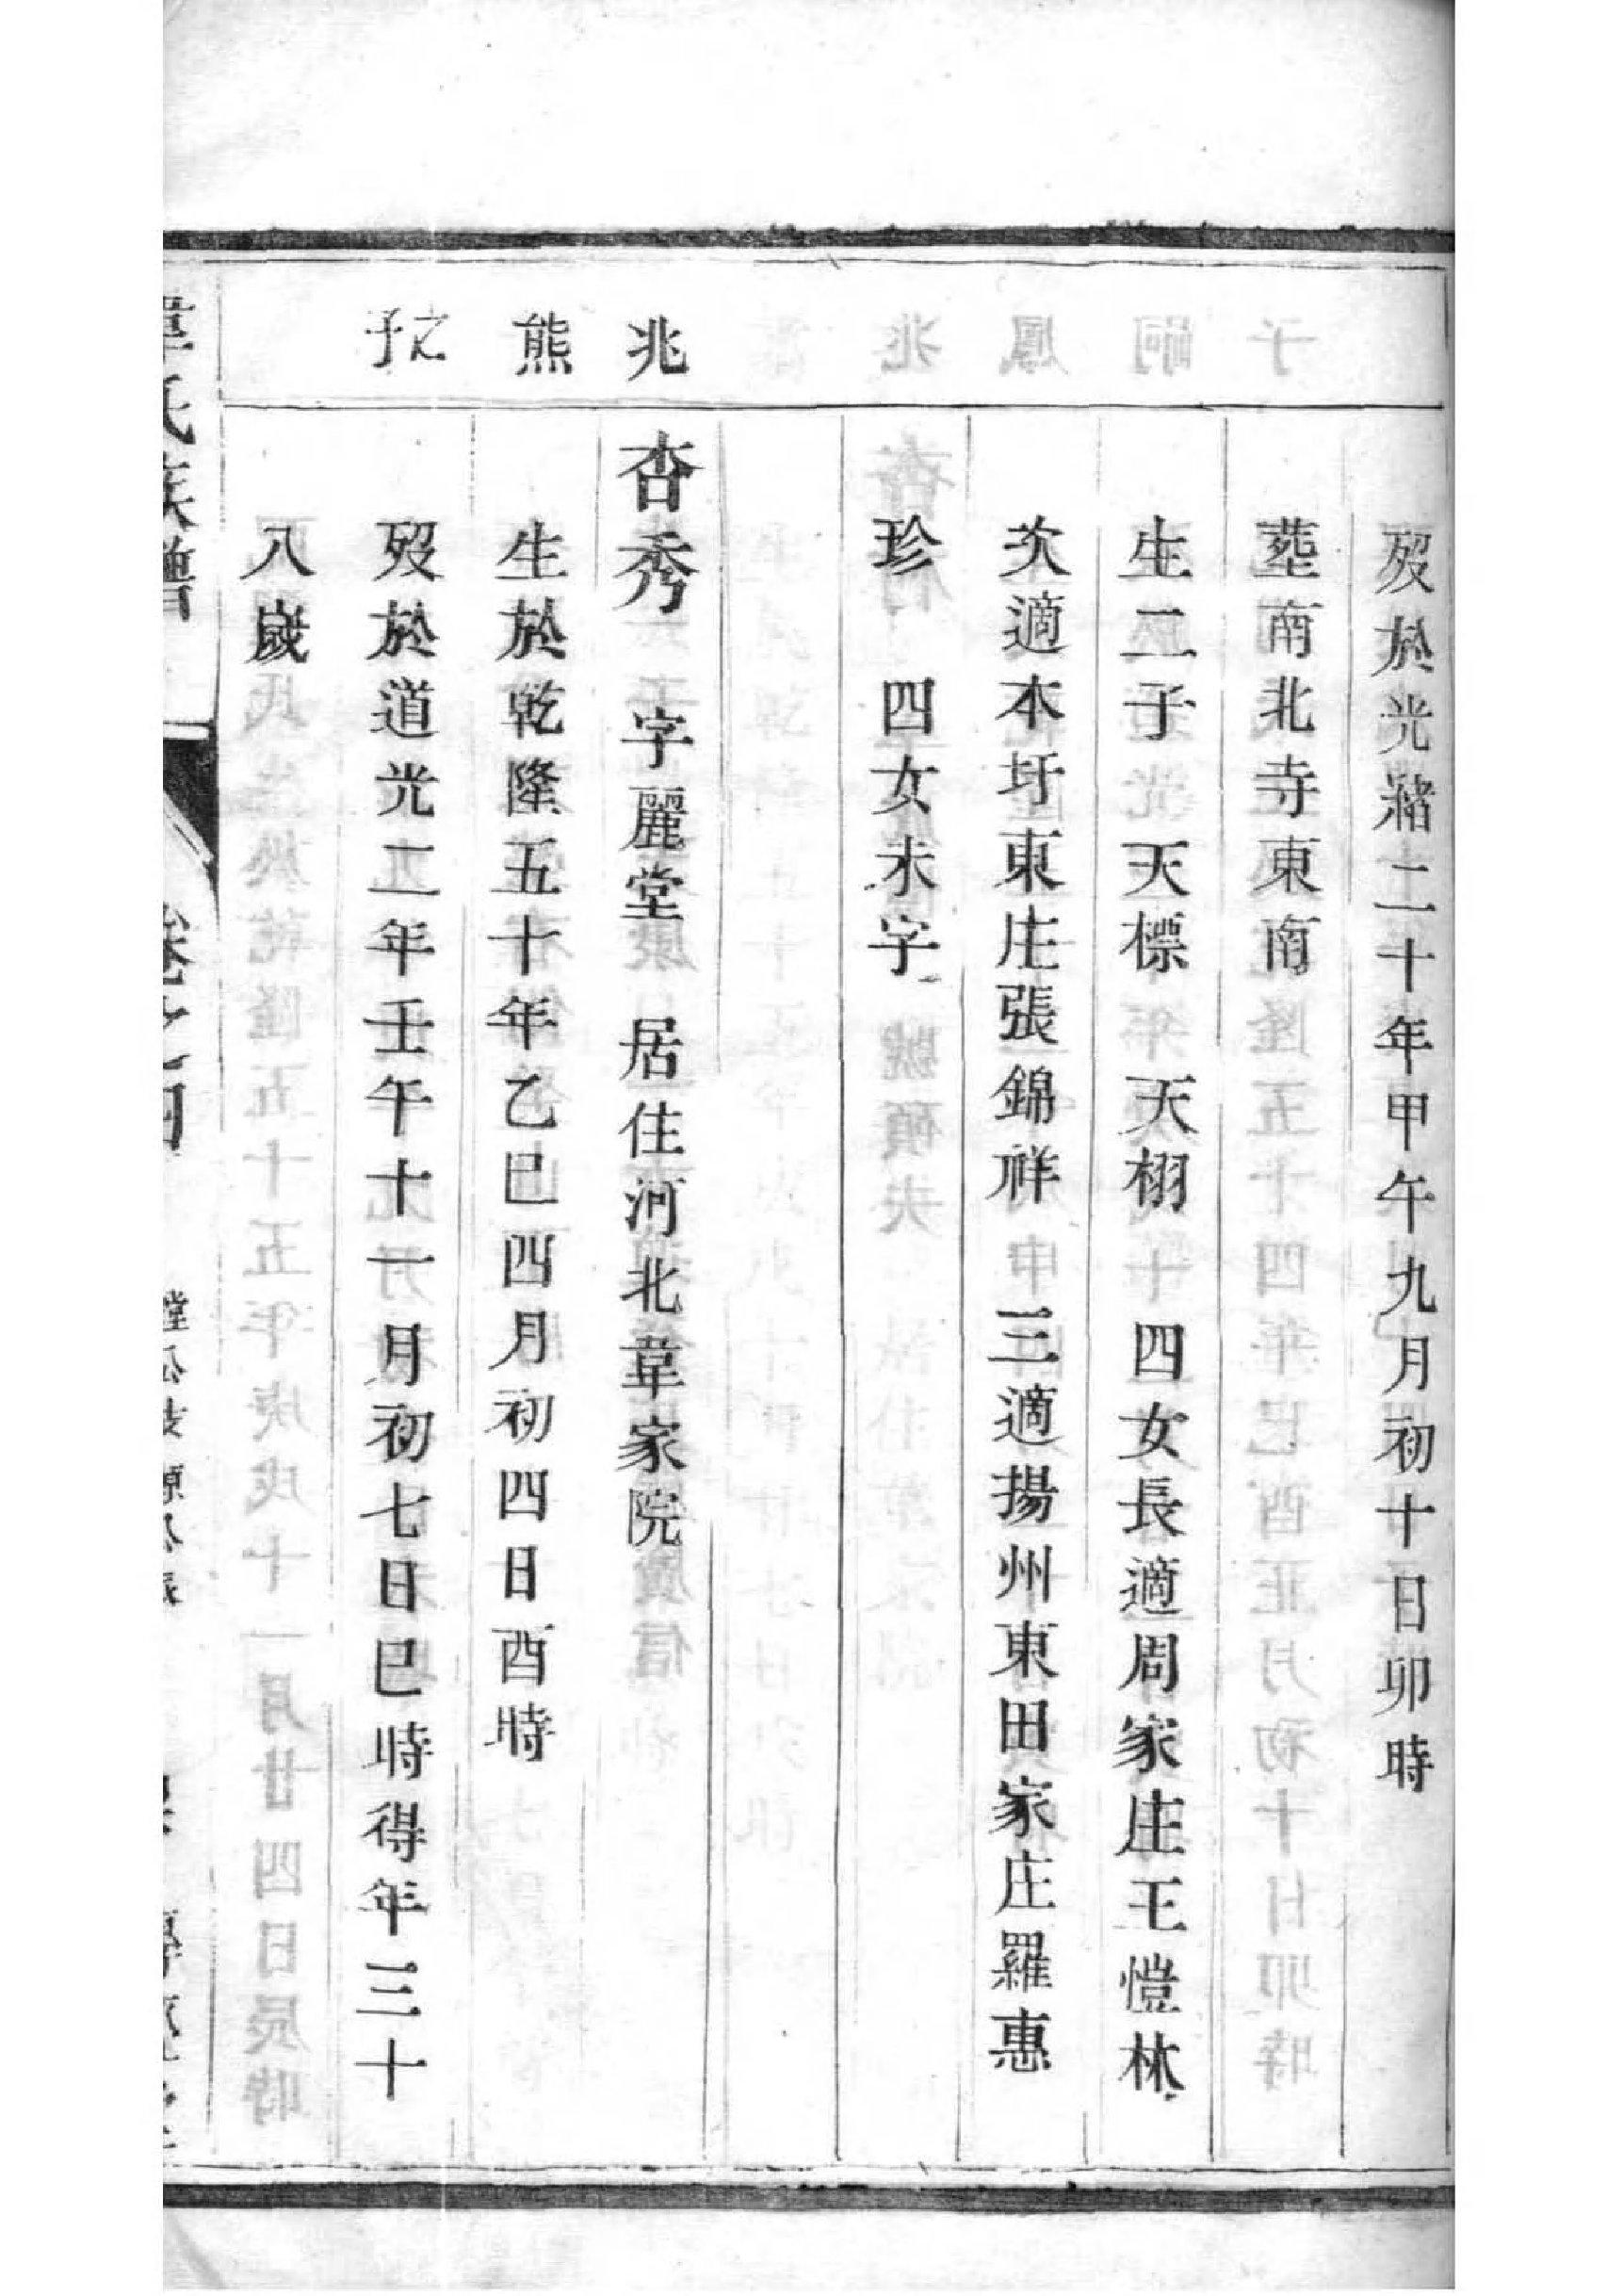 歿於光緒二十年甲午九月初十日卯時
葬南北寺東南
生二子 天標 天栩 四女長適周家庄王愷林
次適本圩東庄張錦祥 三適揚州東田家庄羅惠
珍 四女未字
兆熊之子
杏秀 字麗堂 居住河北韋家院
生於乾隆五十年乙巳四月初四日酉時
歿於道光二年壬午十一月初七日巳時得年三十
八歲
韋氏族譜 卷之四